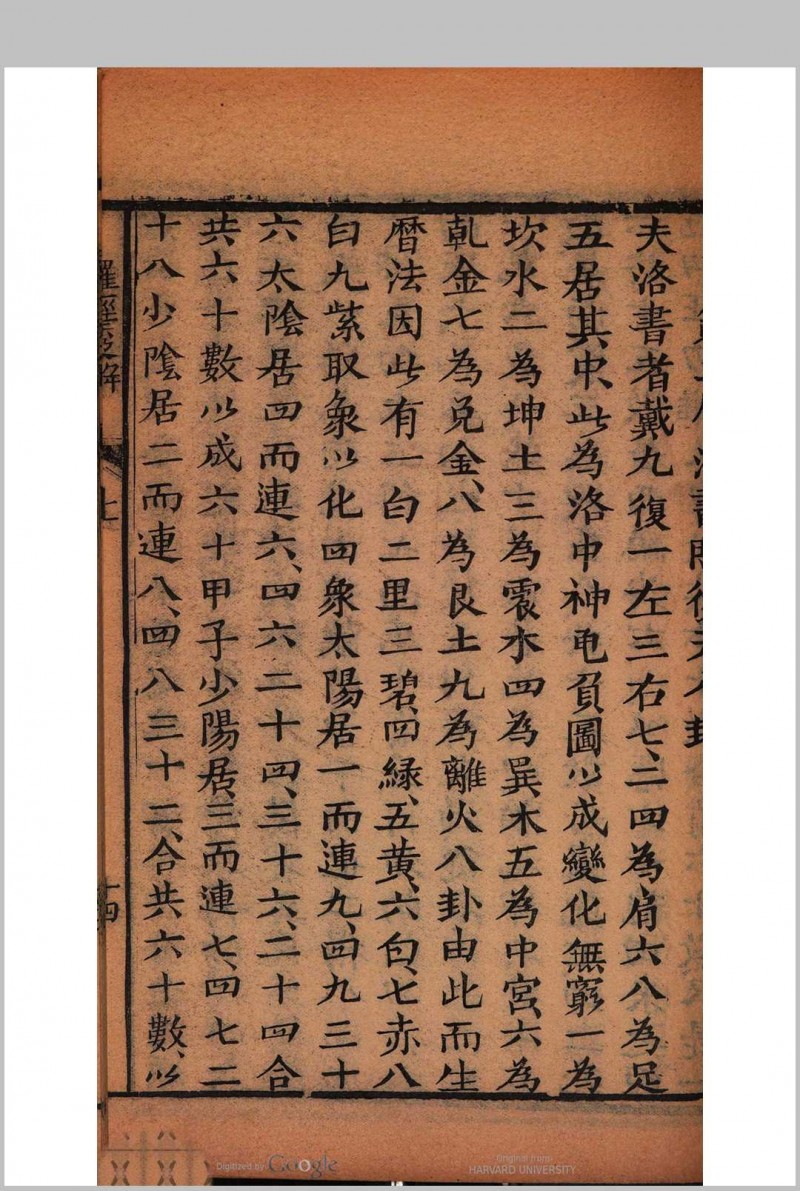 洛書
後天八卦
夫洛書者戴九復一左三右七、二四為肩六八為足
五居其中、此為洛中神龟負圖以成變化無窮一為
坎水二為坤土三為震木四為巽木五為中宮六為
乹金七為兌金、八為艮土九為離火八卦由此而生
曆法因此有一白二里三碧、四緑、五黄、六白、七赤八
白九紫取象以化四象太陽居一而連九、四九三十
六太陰居四而連六、四六二十四、三十六、二十四合
共六十數以成六十甲子少陽居、三而連七、四七二
十八少陰居二而連八、四八三十二、合共六十數、以
羅經
解
七
十四
Digitized by Google
Original from
HARVARD UNIVERSITY